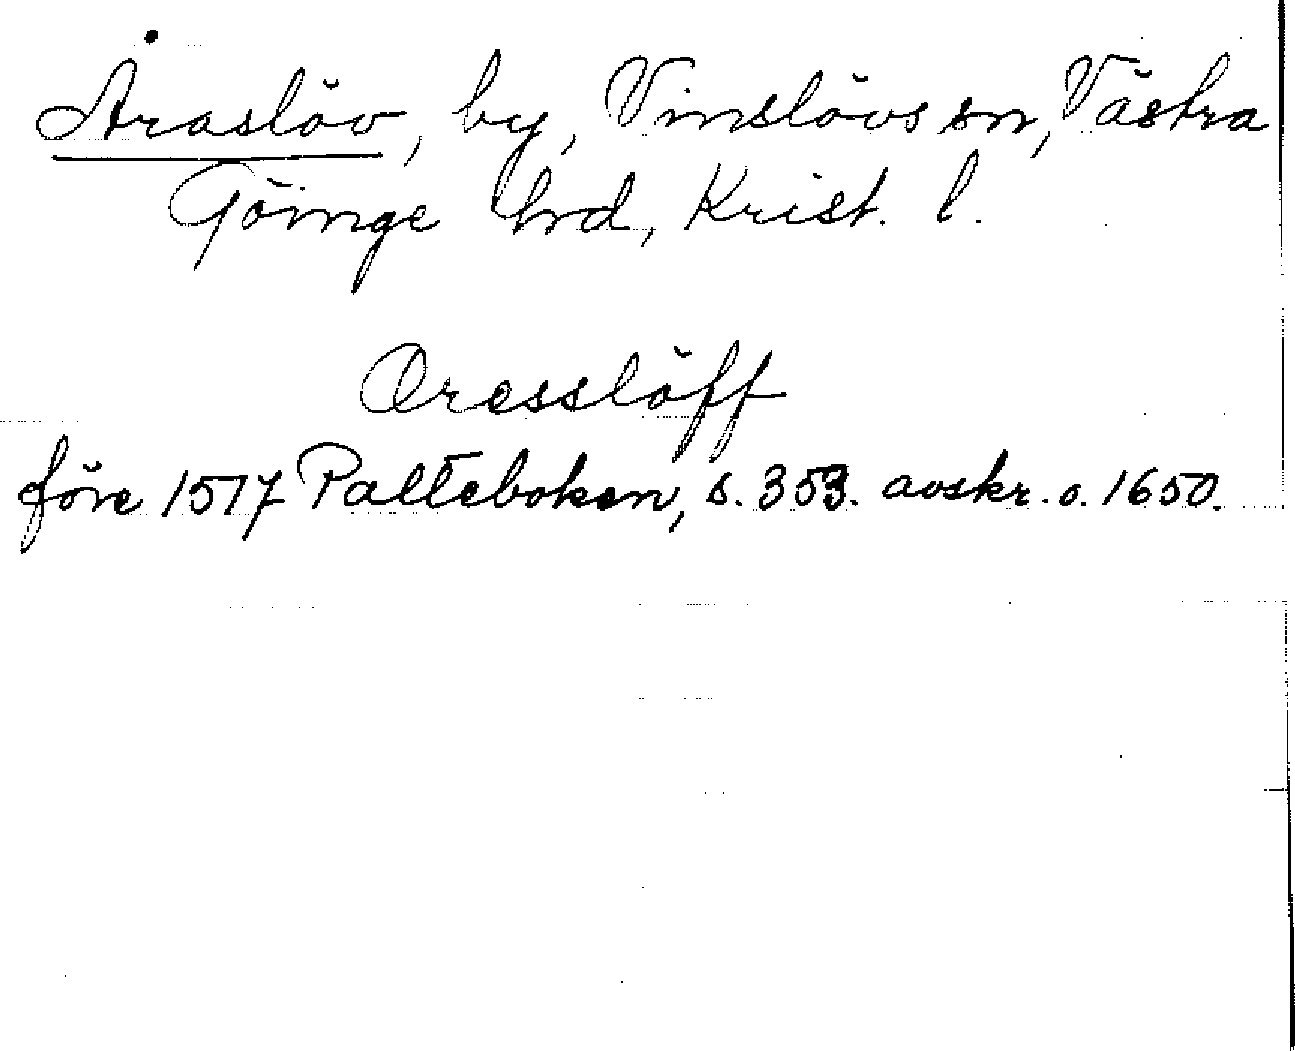 Åraslöv, by, Vinslövs sn, Västra
Göinge hrd, Krist. l.
Oresslöff
före 1517 Palteboken, s. 353. avskr. o. 1650.